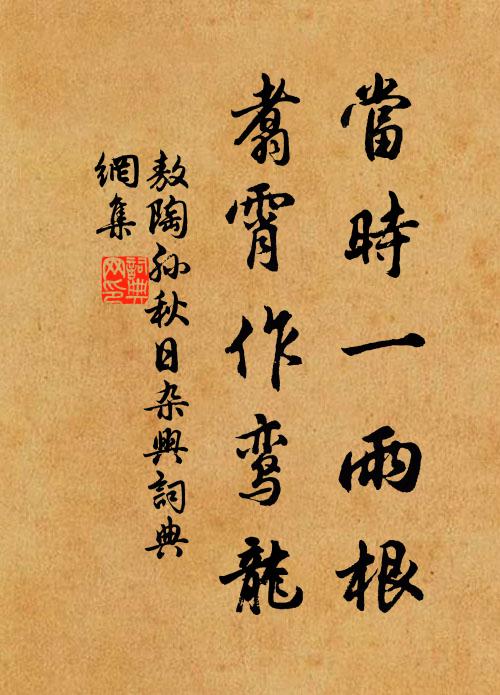 當時一雨根
翥霄作鸾龍
敖陶孙秋日杂興詞典
網集
詞典網印